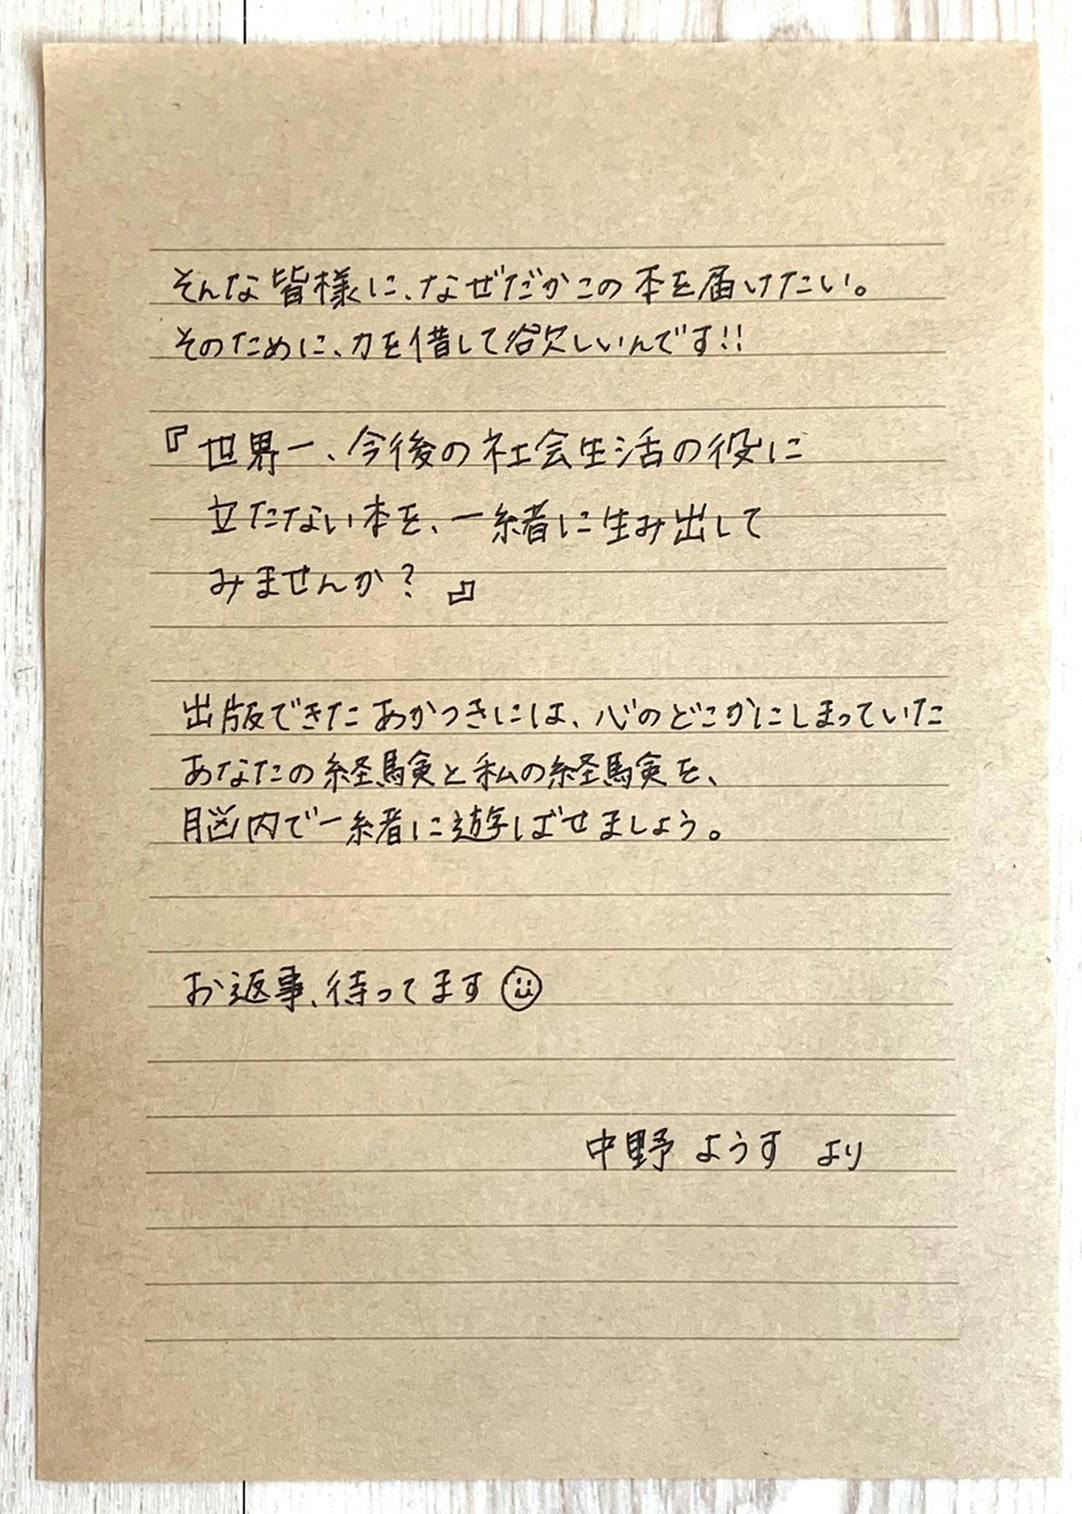 そんな皆様に、なぜだかこの本を届けたい。
そのために、力を借して欲しいんです!!
『世界一、今後の社会生活の役に
立たない本を、一緒に生み出して
みませんか?』
出版できたあかつきには、心のどこかにしまっていた
あなたの経験と私の経験を、
脳内で一緒に遊ばせましょう。
お返事、待ってます
中野 ようす より